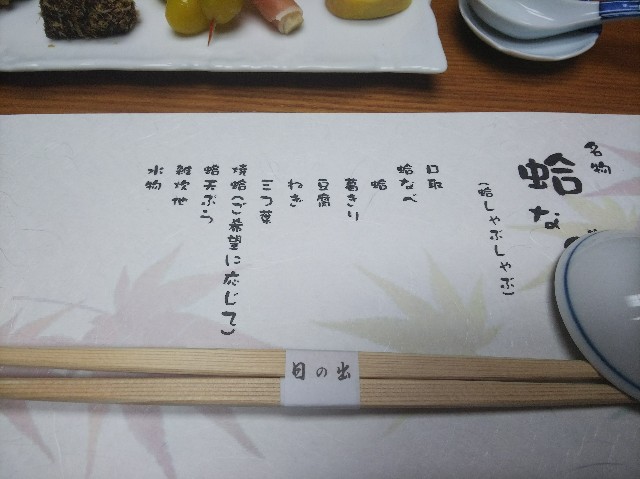 名物
蛤な
(蛤しゃぶしゃぶ)
口取
蛤なべ
蛤
葛きり
豆腐
ねぎ
三つ葉
焼蛤(ご希望に応じて)
蛤天ぷら
雑炊他
水物
日の出